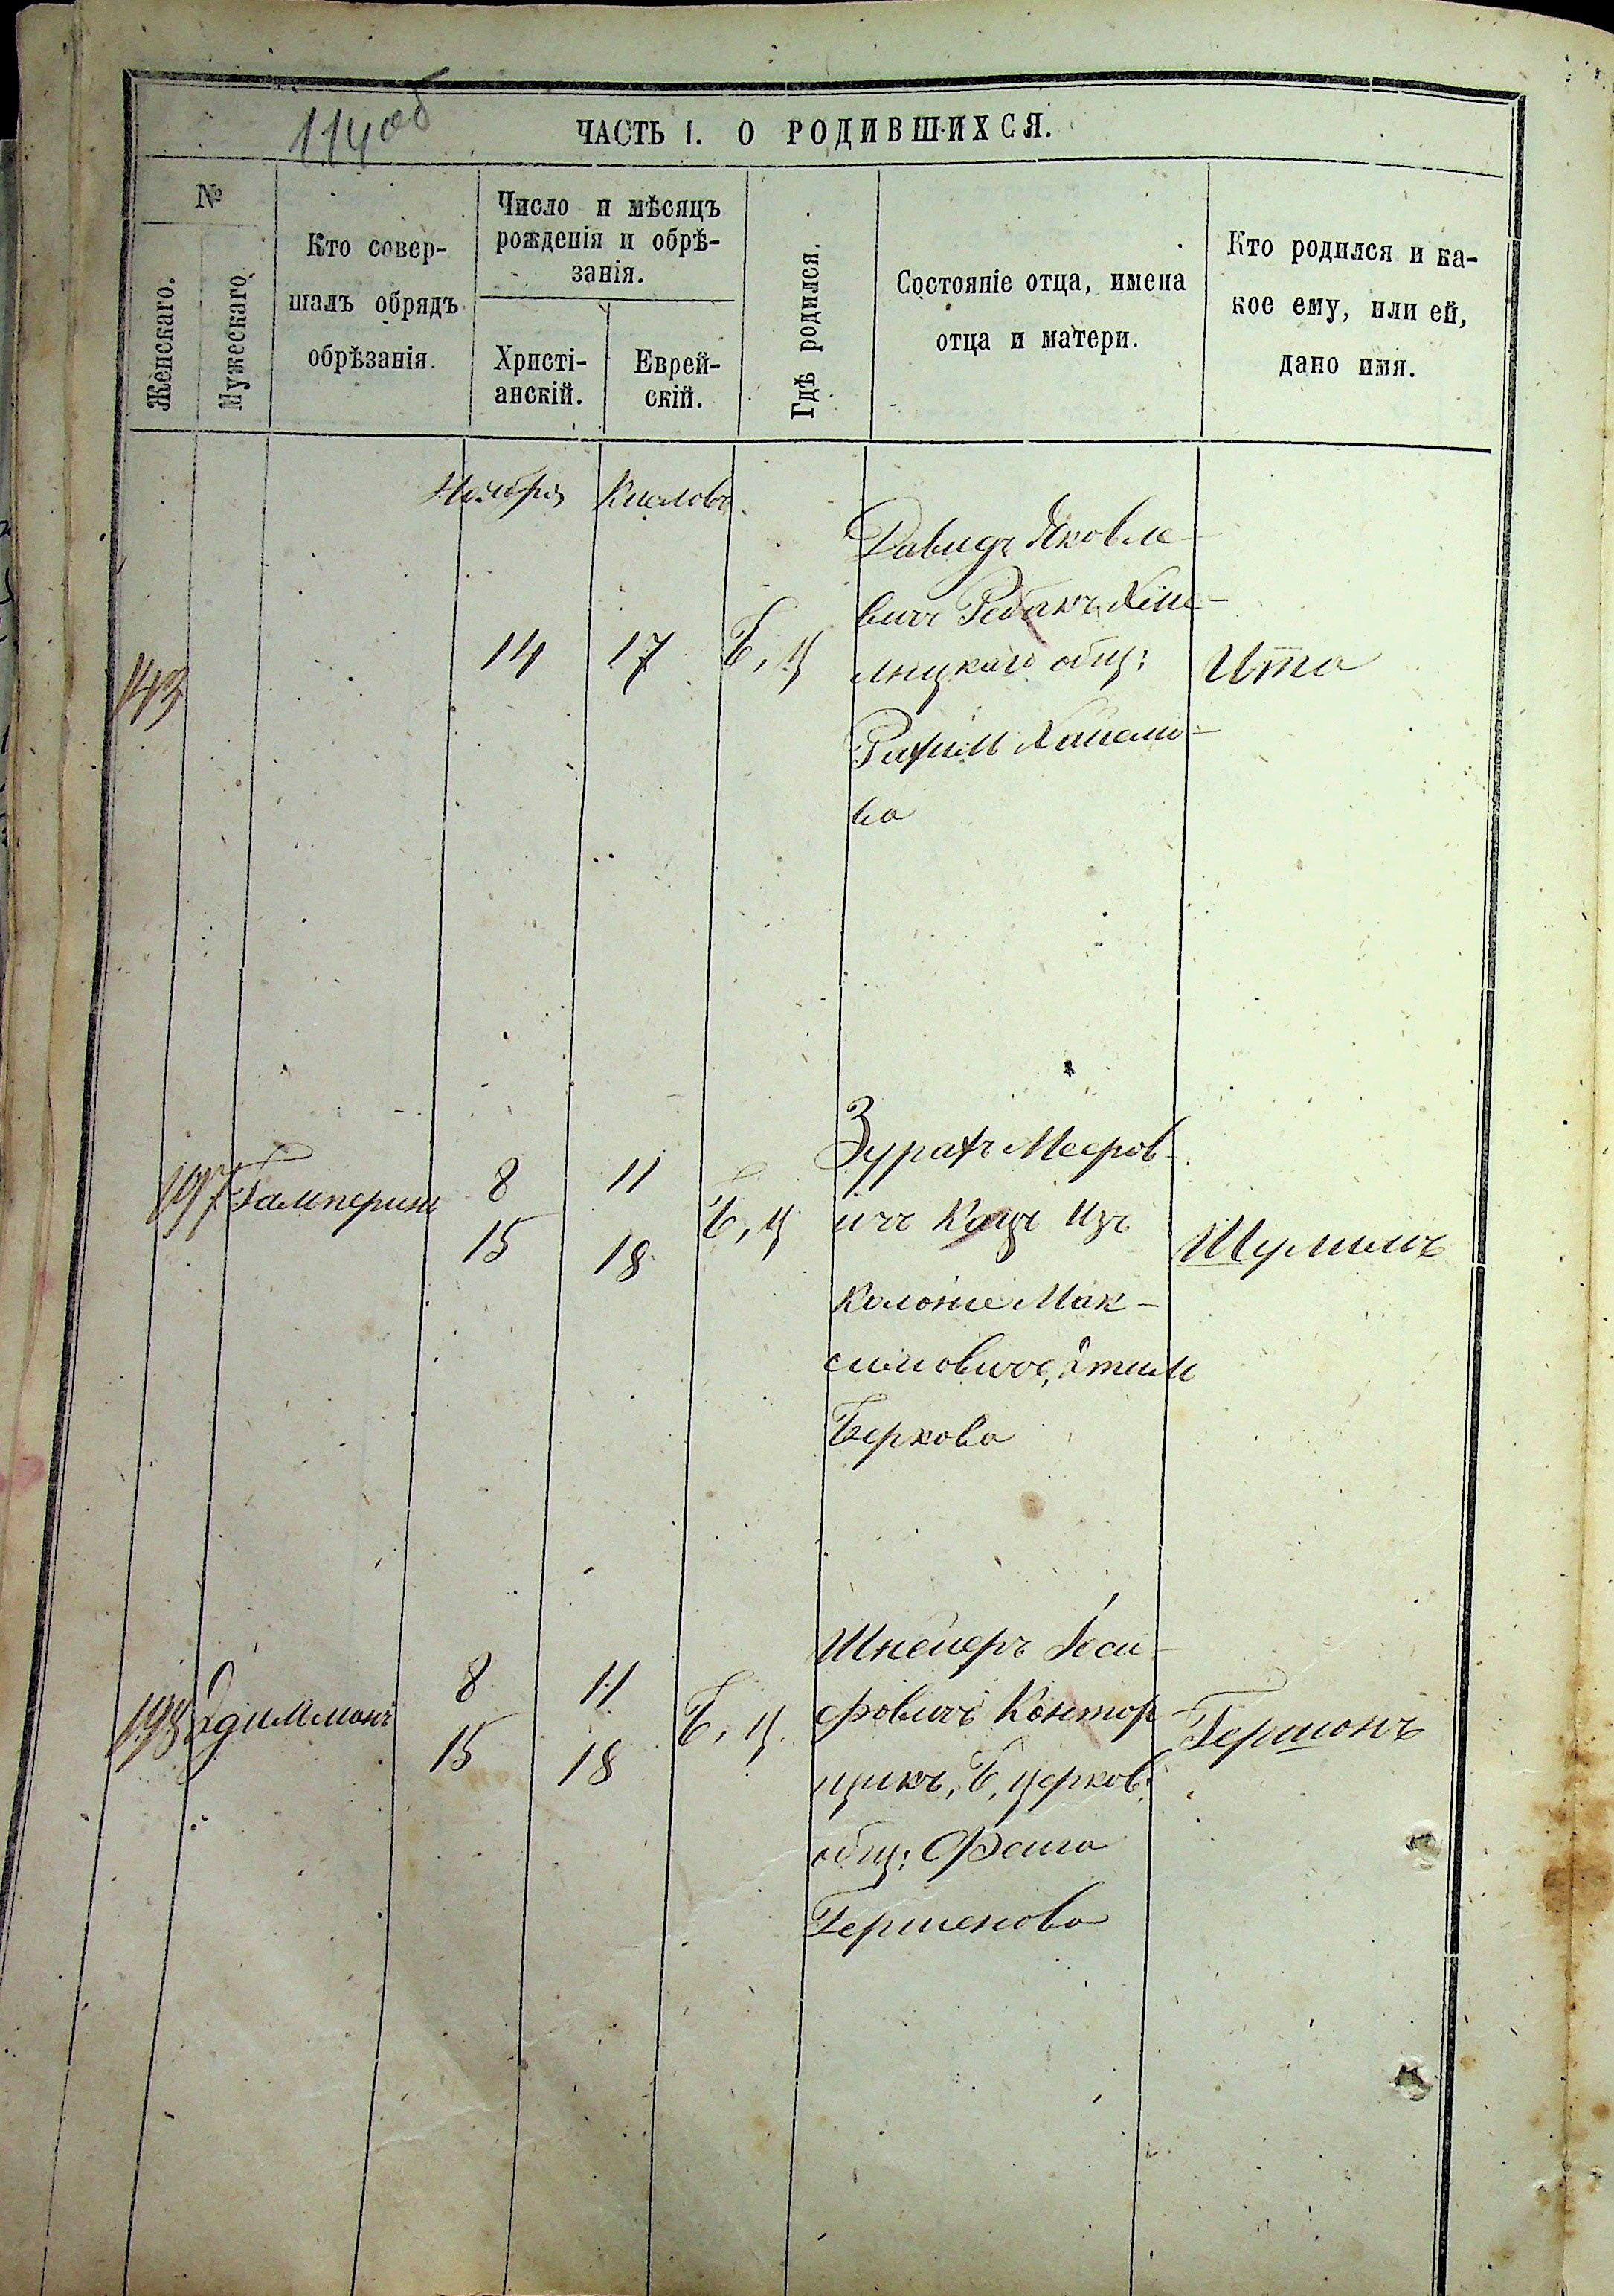 114об
ЧАСТЬ I. О РОДИВШИХСЯ.
№
Женскаго.
Мужескаго
Кто совер-
шалъ обрядъ
обрѣзанія.
Число и мѣсяцъ
рожденія и обрѣ-
занія.
Христі-
анскій.
Еврей-
скій.
Гдѣ родился.
Состояніе отца, имена
отца и матери.
Кто родился и ка-
кое ему, или ей,
дано имя.
Ноября Кислевъ
143
14
17
Б, ц
Давидъ Яковле-
вичъ
общ:
ва
Ита
197
Гальперинъ
8 11
15 18
Б, ц
Зурахъ Мееров-
ичъ Кацъ Изъ
Колоніе Мак-
симовичъ,
Беркова
Шулимъ
198
Эдильманъ
8 11
15 18
Б, ц.
Шнеиеръ Іоси-
фовичъ Контор
щикъ, Б, церков:
общ: Феига
Гершенова
Гершонъ